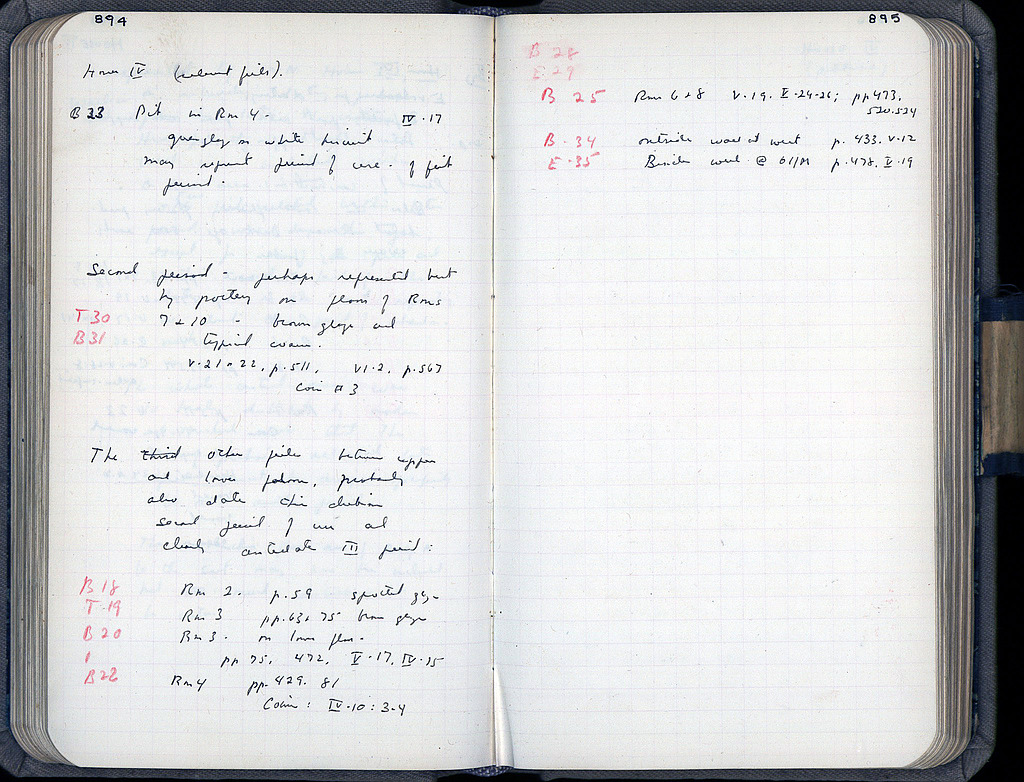 894
House IV (relevant fills).
B 23 Pit in Rm 4. IV.17
gray glaze on white biscuit
may represent period of use of first
period.
Second period - perhaps represented best
by pottery on floors of Rms
T 30 7 + 10 - brown glaze and
B 31 typical coarse.
V.21+22, p.511, VI.2, p.567
Coin # 3
The third other fills between upper
and lower floors, probably
also date
second period of use and
clearly antedate III period:
B 18 Rm 2. p.59 spouted
T.19 Rm 3 pp.63, 75 brown glaze
B 20 Rm 3. on lower floor.
pp 75, 472, V.17, IV.15
B22 Rm 4 pp.429. 81
Coin: IV.10:3-4
895
B 28
E 29
B 25 Rm 6+8 V.19. V.24-26; pp.473,
520.524
B.34 outside wall at west p. 433. V.12
E.35 Beside well @ 61/M p.478. V.19